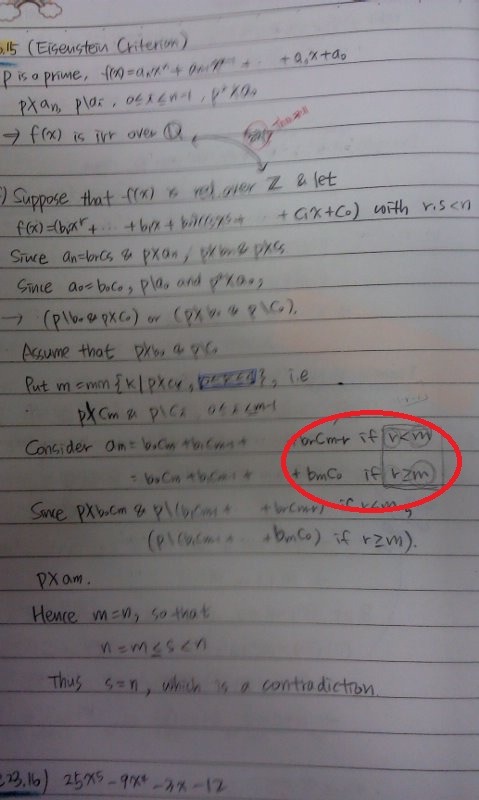 .15 (Eisenstein Criterion)
P is a prime, f(x)=aₙxⁿ+ + ⋯ +a₁x+a₀
p∤aₙ, p|aᵢ, 0≤i≤n-1, p²∤a₀
→ f(x) is irr over Q
) Suppose that f(x) is red. over Z & let
f(x)=(bᵣxʳ+ ⋯ +b₁x+b₀)(cₛxˢ+ ⋯ +c₁x+c₀) with r,s<n
Since aₙ=bᵣcₛ & p∤aₙ, p∤bᵣ & p∤cₛ
Since a₀=b₀c₀, p|a₀ and p²∤a₀,
→ (p|b₀ & p∤c₀) or (p∤b₀ & p|c₀).
Assume that p∤b₀ & p|c₀
Put m=min{k|p∤cₖ, }, i.e
p∤cₘ & p|cᵢ, 0≤i≤m-1
Consider aₘ=b₀cₘ+b₁cₘ₋₁+ +bᵣcₘ₋ᵣ if r<m
=b₀cₘ+b₁cₘ₋₁+ +bₘc₀ if r≥m
Since p∤b₀cₘ & p|(b₁cₘ₋₁+ +bᵣcₘ₋ᵣ) if r<m,
(p|(b₁cₘ₋₁+ ⋯ +bₘc₀) if r≥m).
p∤aₘ.
Hence m=n, so that
n=m≤s<n
Thus s=n, which is a contradiction.
23.16) 25x⁵-9x⁴-3x-12